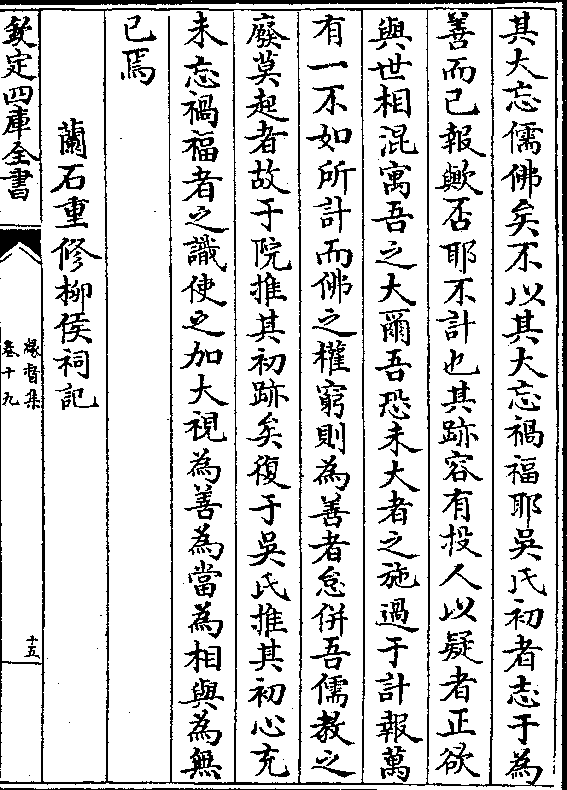 其大忘儒佛矣不以其大忘禍福耶吳氏初者志于為
善而已報歟否耶不計也其跡容有投人以疑者正欲
與世相混寓吾之大爾吾恐未大者之施過于計報萬
有一不如所計而佛之權窮則為善者怠併吾儒教之
廢莫起者故于院推其初跡矣復于吳氏推其初心充
未忘禍福者之識使之加大視為善為當為相與為無
已焉
蘭石重修柳侯祠記
欽定四庫全書
緣督集
卷十九
十五